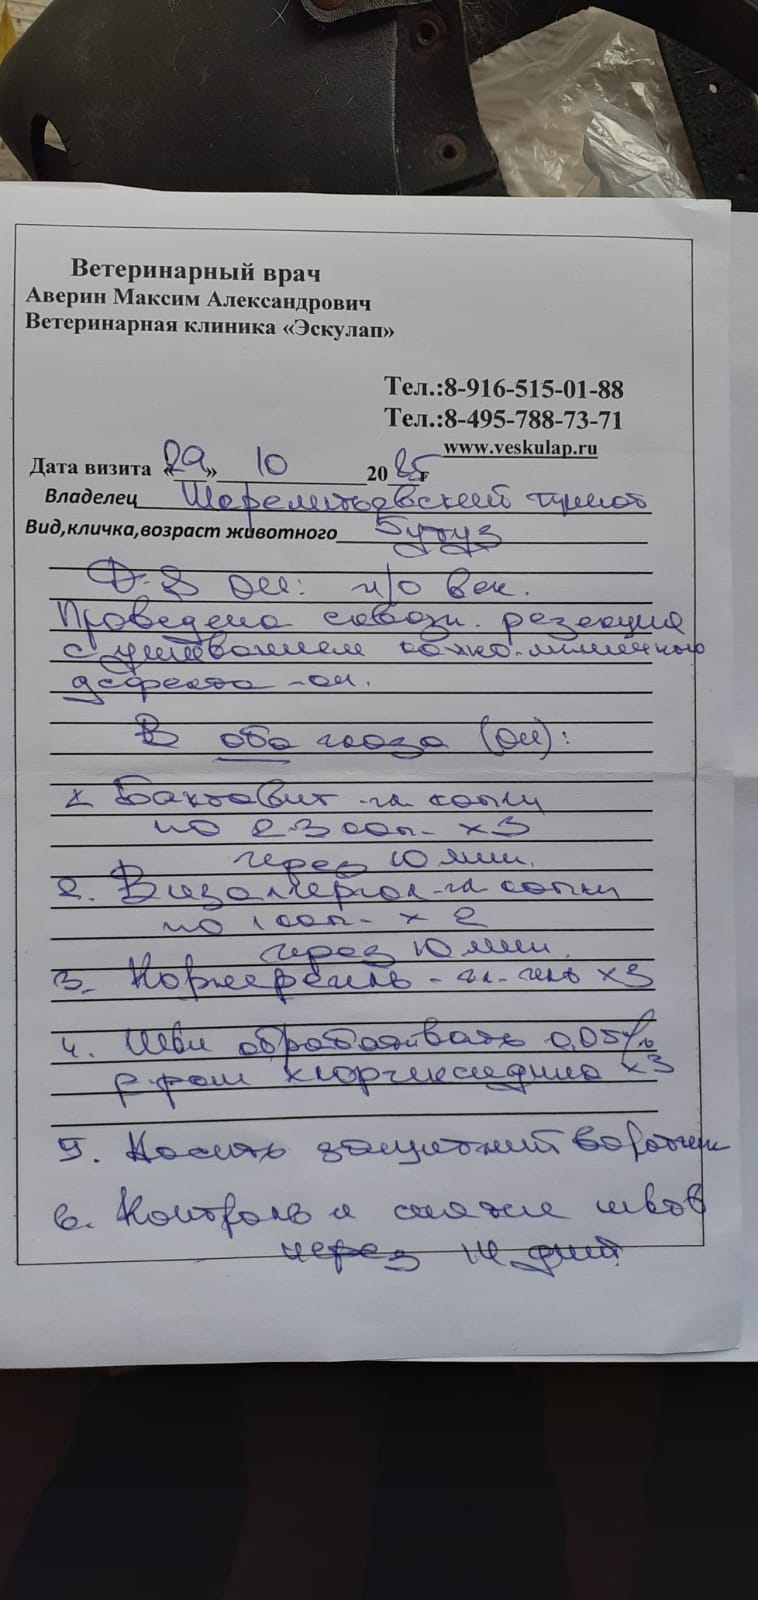 Ветеринарный врач
Аверин Максим Александрович
Ветеринарная клиника «Эскулап»
Тел.:8-916-515-01-88
Тел.:8-495-788-73-71
www.veskulap.ru
Дата визита «29» 10 2025г
Владелец Шереметьевский приют
Вид,кличка,возраст животного Бутуз
D-S OU: н/о век.
Проведена сквозн. резекция
с ушиванием кожно-мышечного
дефекта - ou.
В оба глаза (ou):
1. Бактавит - гл капли
по 2-3 кап- x3
через 10 мин.
2. Визаллергол - гл капли
по 1 кап- x 2
через 10 мин.
3. Корнерегель - гл- гель x3
4. Швы обрабатывать 0,05%
р-ром хлоргексидина x3
5. Носить защитный воротник
6. Контроль и снятие швов
через 14 дней